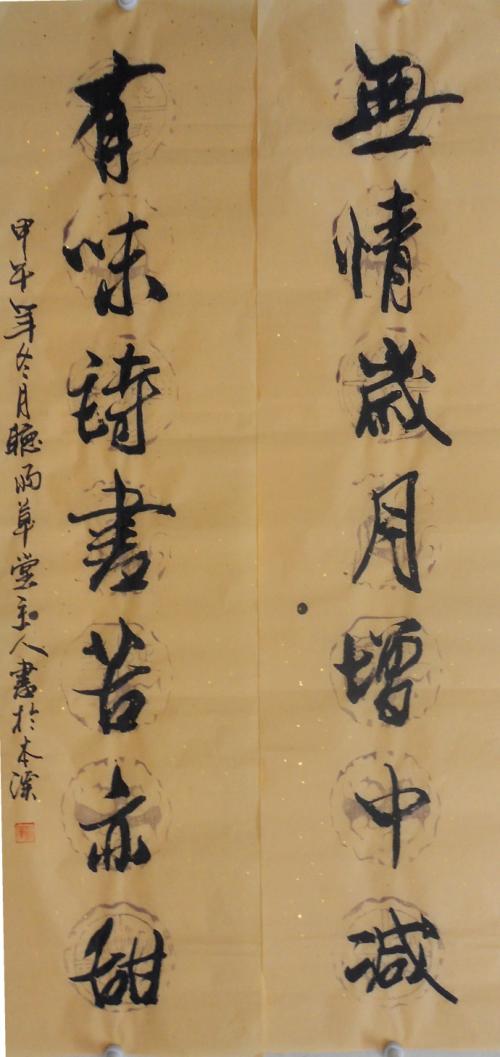 無情歲月增中減
有味詩書苦亦甜
甲午年冬月聽雨草堂主人書於本溪